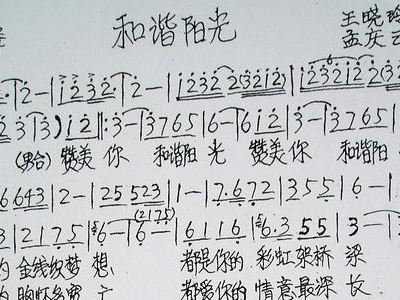 和谐阳光
王晓玲
孟庆云
2-|i232·|2-|i232232i2|i232i2i232
23 3)i2‖:3-|3765|6-6i2|3-|3765|
(男合) 赞美 你 和谐阳 光 赞美 你 和谐阳
6643|2-|25523|1-|7·672|355|6-|
3|2175|6-6-|6116|6·355|3-|3
(2175)
的 金线织梦 想 都是你的 彩虹架桥 梁
的 胸怀多宽 广 都爱你的 情意最深 长